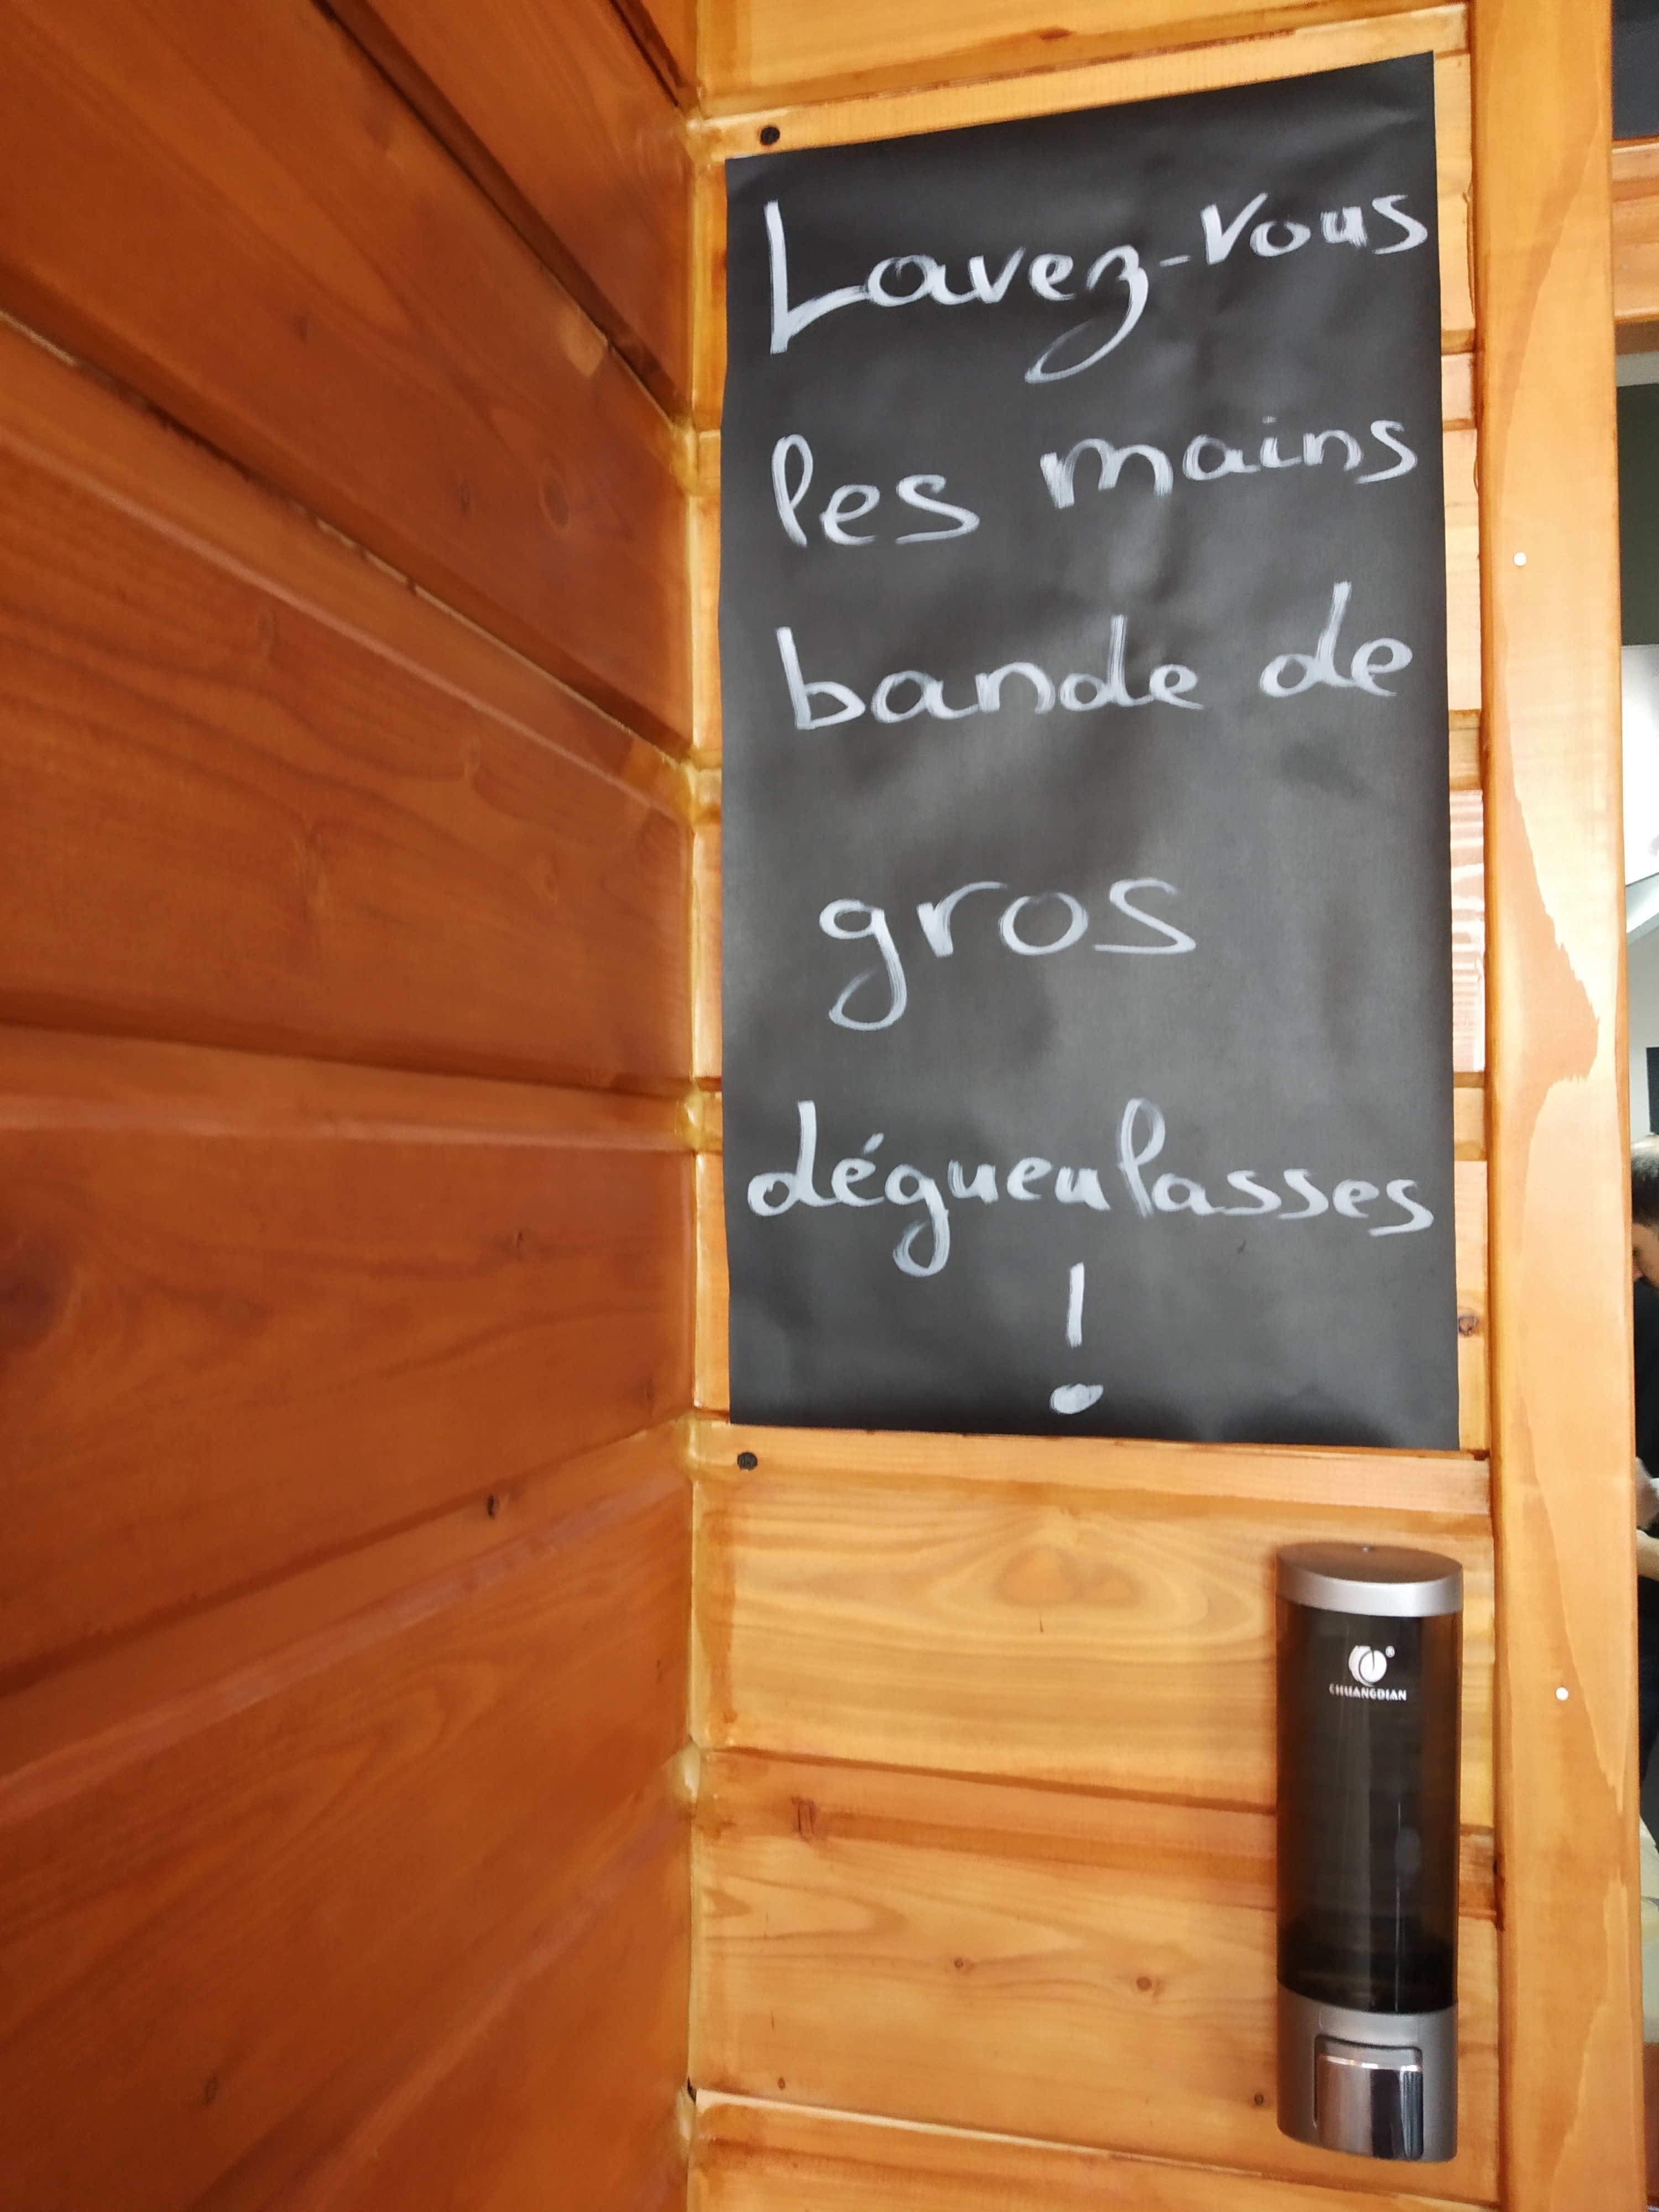 Lavez-vous
les mains
bande de
gros
dégueulasses
!
CHUANGDIAN